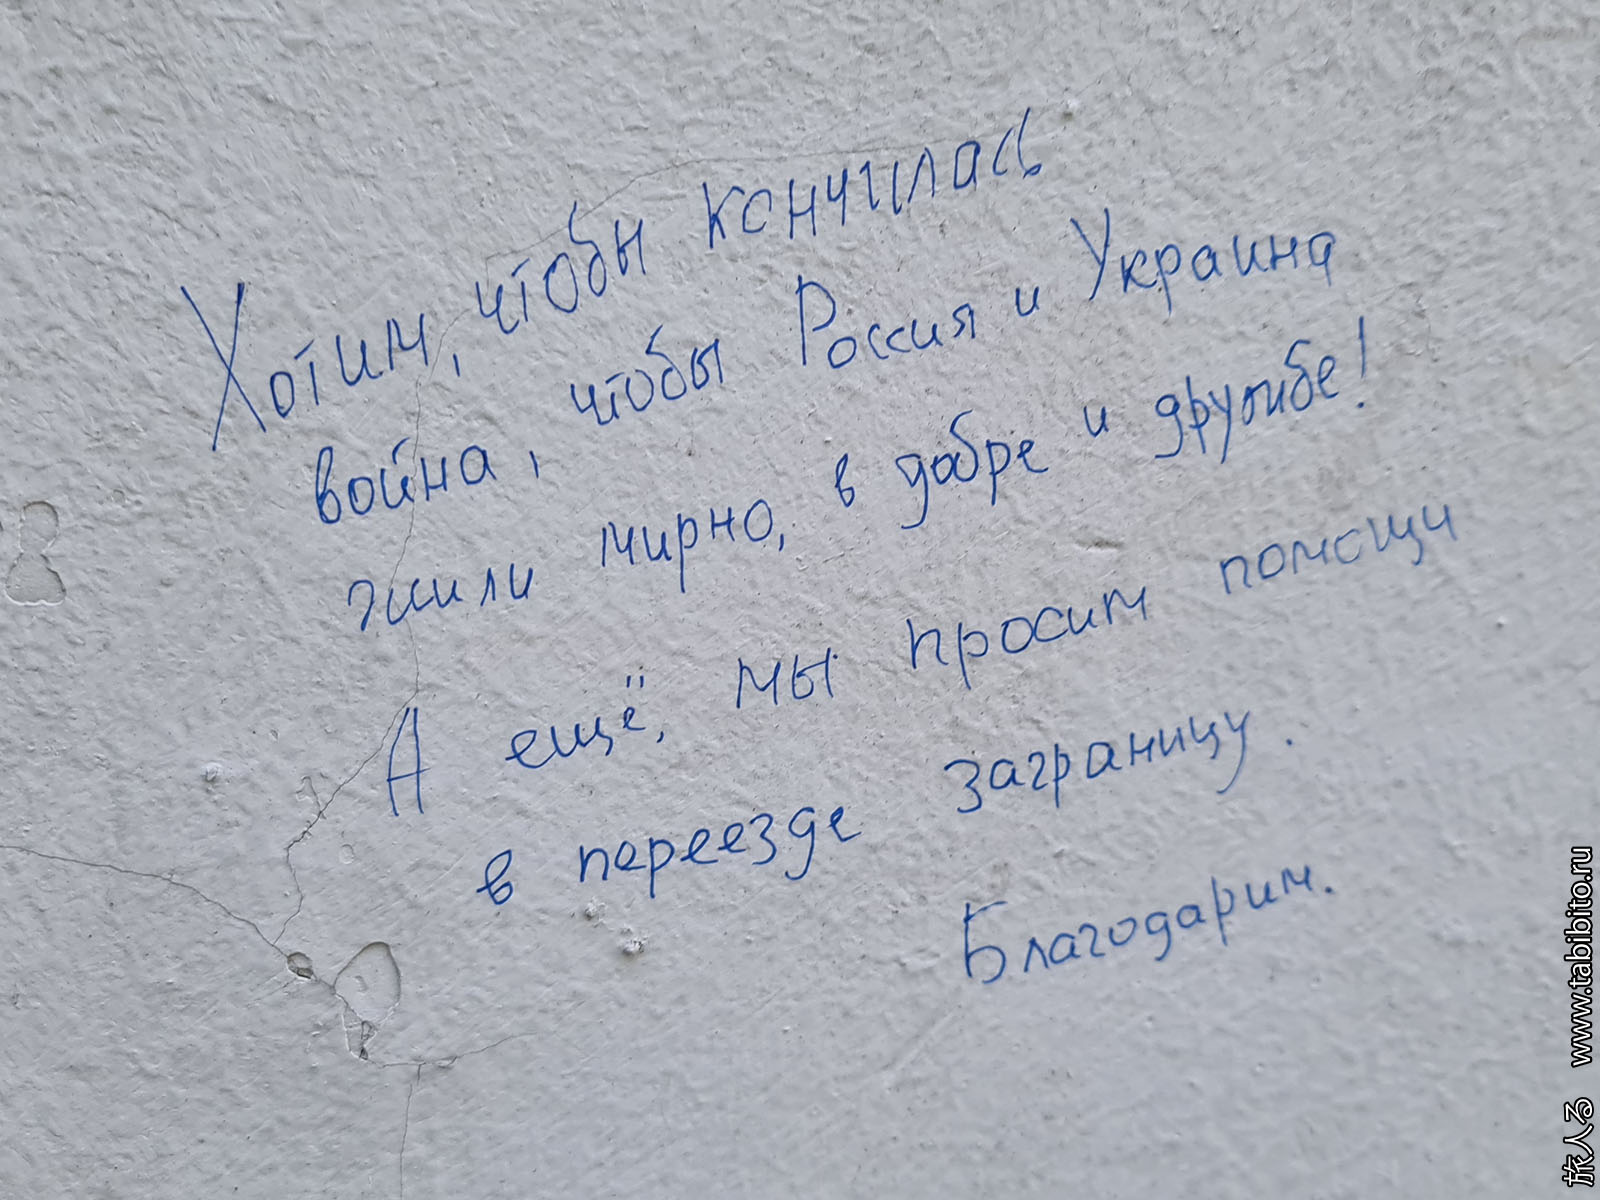 Хотим, чтобы кончилась
война, чтобы Россия и Украина
жили мирно, в добре и дружбе!
А ещё, мы просим помощи
в переезде заграницу.
Благодарим.
旅人る www.tabibito.ru